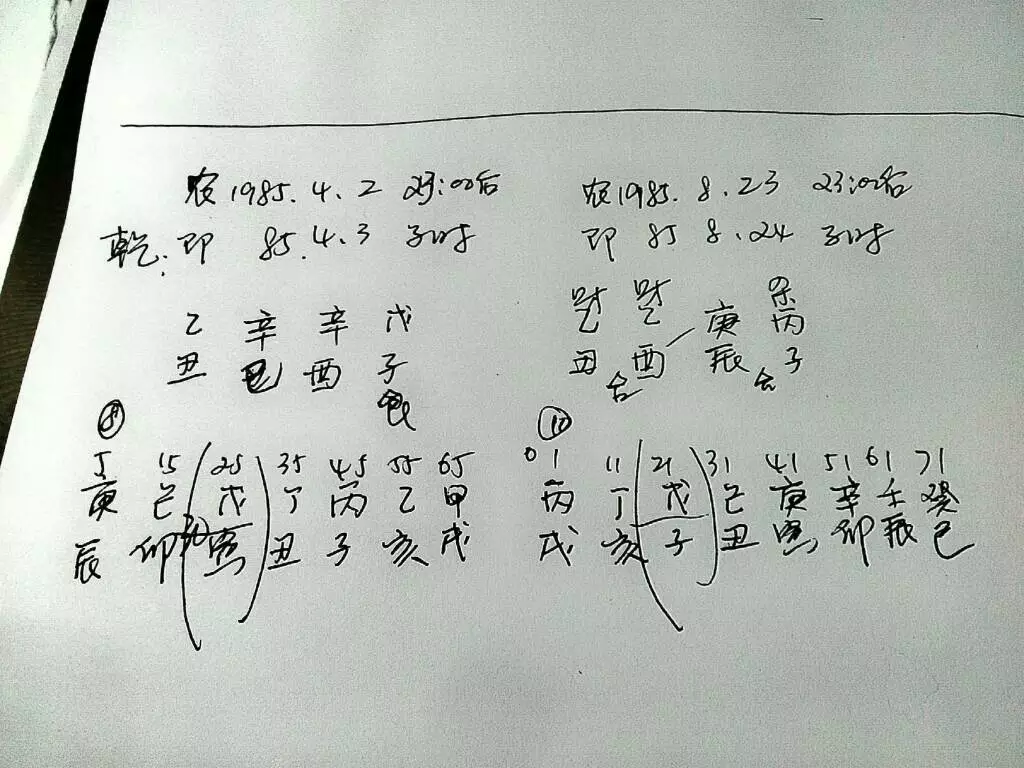 农1985.4.2 23:00后
乾:即 85.4.3 子时
乙 辛 辛 戊
丑 巳 酉 子
5 15 25 35 45 55 65
庚 己 戊 丁 丙 乙 甲
辰 卯 寅 丑 子 亥 戌
农1985.8.23 23:00后
即 85 8.24 子时
财 财 杀
乙 乙 庚 丙
丑 酉 辰 子
合 合
⑩
01 11 21 31 41 51 61 71
丙 丁 戊 己 庚 辛 壬 癸
戌 亥 子 丑 寅 卯 辰 巳